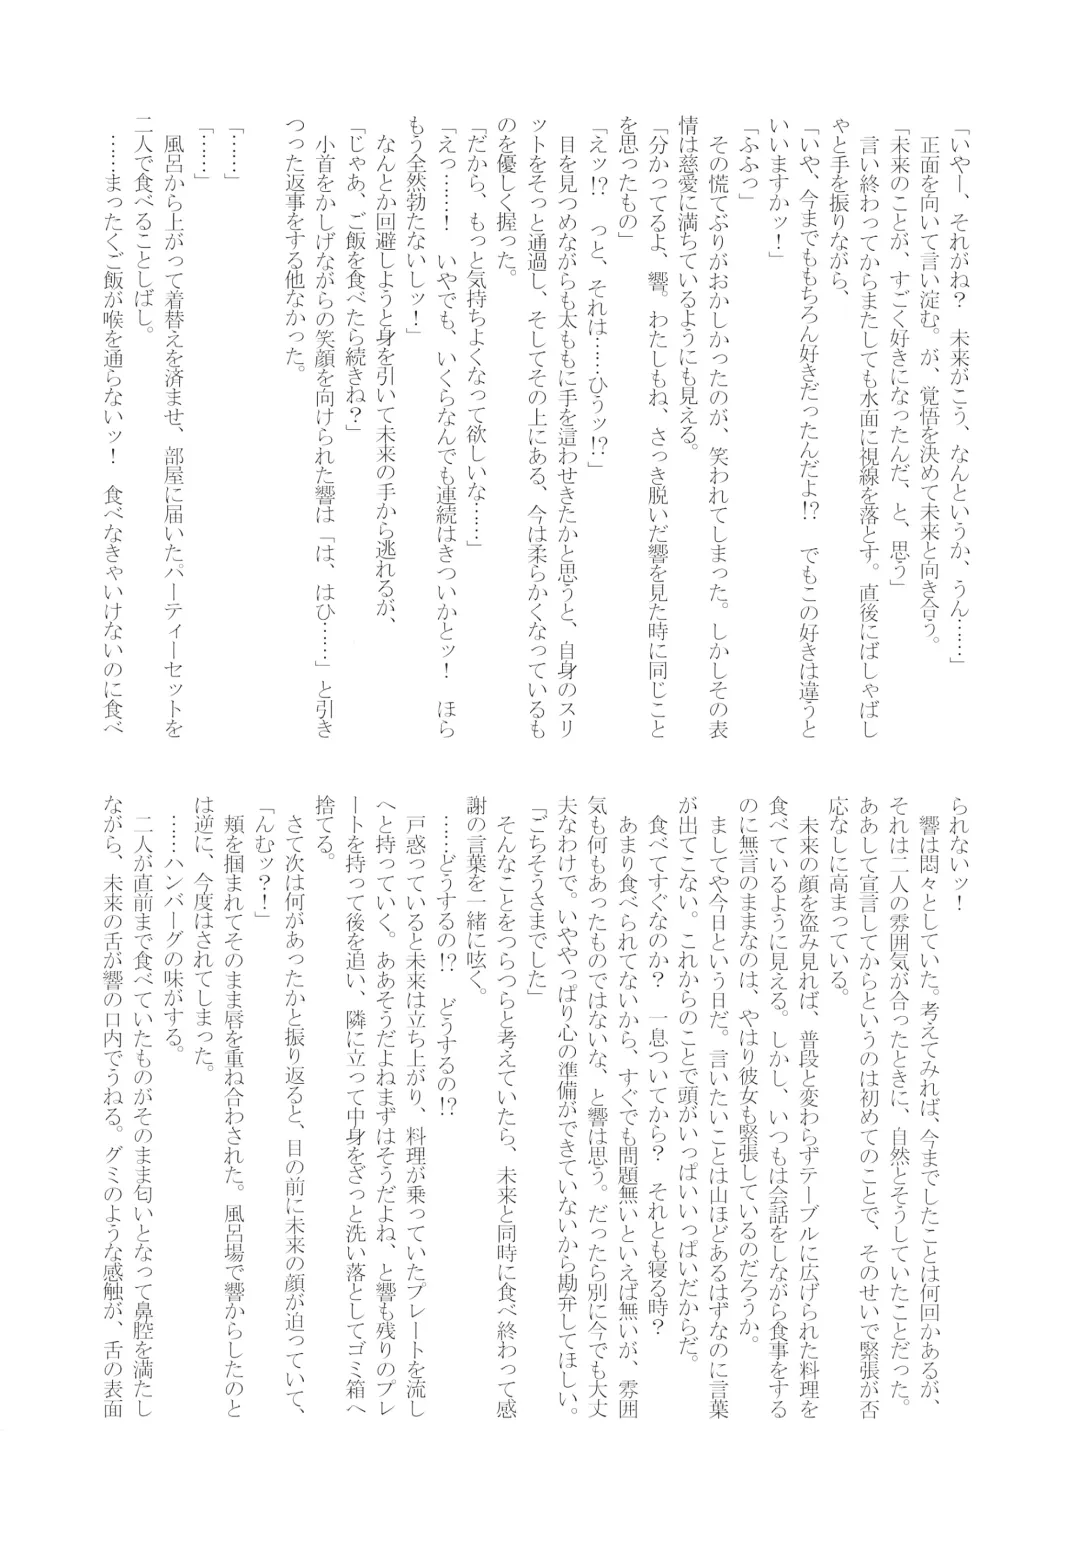 「いやー、それがね？　未来がこう、なんというか、うん……」
正面を向いて言い淀む。が、覚悟を決めて未来と向き合う。
「未来のことが、すごく好きになったんだ、と、思う」
言い終わってからまたしても水面に視線を落とす。直後にばしゃばし
ゃと手を振りながら、
「いや、今までももちろん好きだったんだよ!?　でもこの好きは違うと
いいますかッ！」
「ふふっ」
その慌てぶりがおかしかったのが、笑われてしまった。しかしその表
情は慈愛に満ちているようにも見える。
「分かってるよ、響。わたしもね、さっき脱いだ響を見た時に同じこと
を思ったもの」
「えッ!?　っと、それは……ひうッ!?」
目を見つめながらも太ももに手を這わせきたかと思うと、自身のスリ
ットをそっと通過し、そしてその上にある、今は柔らかくなっているも
のを優しく握った。
「だから、もっと気持ちよくなって欲しいな……」
「えっ……！　いやでも、いくらなんでも連続はきついかとッ！　ほら
もう全然勃たないしッ！」
なんとか回避しようと身を引いて未来の手から逃れるが、
「じゃあ、ご飯を食べたら続きね？」
小首をかしげながらの笑顔を向けられた響は「は、はひ……」と引き
つった返事をする他なかった。
「……」
「……」
風呂から上がって着替えを済ませ、部屋に届いたパーティーセットを
二人で食べることしばし。
……まったくご飯が喉を通らないッ！　食べなきゃいけないのに食べ
られないッ！
響は悶々としていた。考えてみれば、今までしたことは何回かあるが、
それは二人の雰囲気が合ったときに、自然とそうしていたことだった。
ああして宣言してからというのは初めてのことで、そのせいで緊張が否
応なしに高まっている。
未来の顔を盗み見れば、普段と変わらずテーブルに広げられた料理を
食べているように見える。しかし、いつもは会話をしながら食事をする
のに無言のままなのは、やはり彼女も緊張しているのだろうか。
ましてや今日という日だ。言いたいことは山ほどあるはずなのに言葉
が出てこない。これからのことで頭がいっぱいいっぱいだからだ。
食べてすぐなのか？　一息ついてから？　それとも寝る時？
あまり食べられてないから、すぐでも問題無いといえば無いが、雰囲
気も何もあったものではないな、と響は思う。だったら別に今でも大丈
夫なわけで。いややっぱり心の準備ができていないから勘弁してほしい。
「ごちそうさまでした」
そんなことをつらつらと考えていたら、未来と同時に食べ終わって感
謝の言葉を一緒に呟く。
……どうするの!?　どうするの!?
戸惑っていると未来は立ち上がり、料理が乗っていたプレートを流し
へと持っていく。ああそうだよねまずはそうだよね、と響も残りのプレ
ートを持って後を追い、隣に立って中身をざっと洗い落としてゴミ箱へ
捨てる。
さて次は何があったかと振り返ると、目の前に未来の顔が迫っていて、
「んむッ？！」
頬を掴まれてそのまま唇を重ね合わされた。風呂場で響からしたのと
は逆に、今度はされてしまった。
……ハンバーグの味がする。
二人が直前まで食べていたものがそのまま匂いとなって鼻腔を満たし
ながら、未来の舌が響の口内でうねる。グミのような感触が、舌の表面